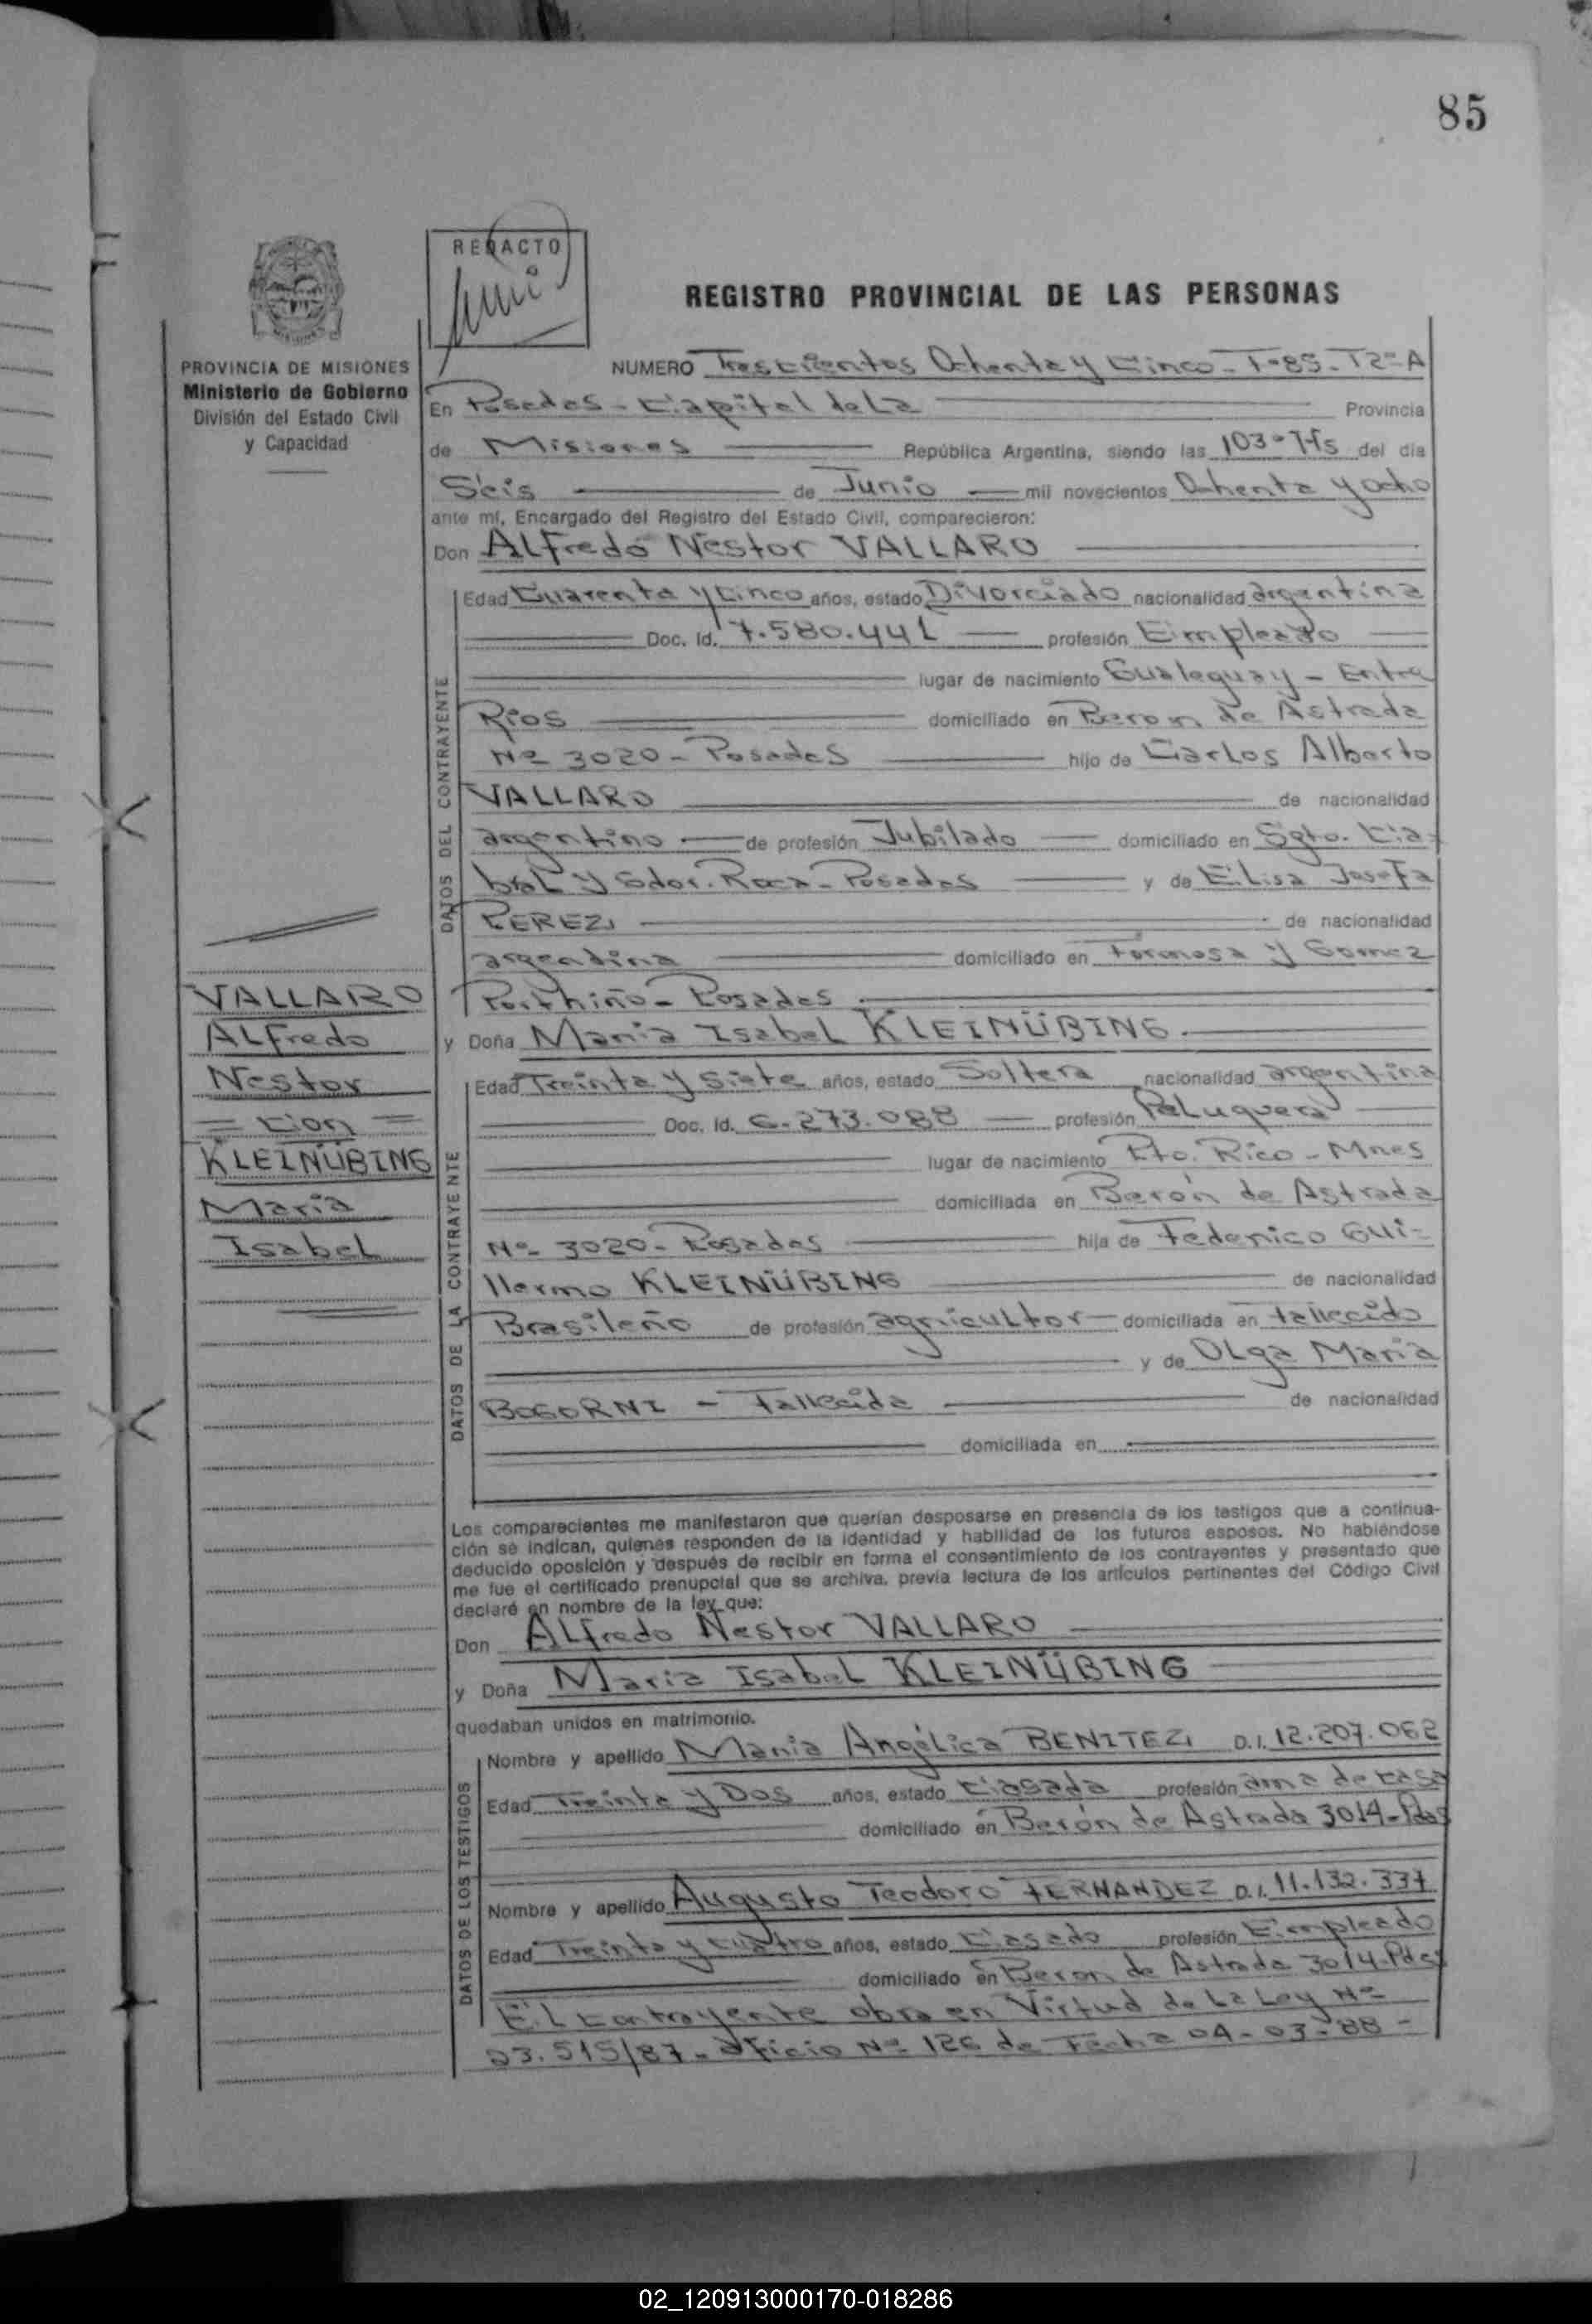 85
REDACTO
REGISTRO PROVINCIAL DE LAS PERSONAS
PROVINCIA DE MISIONES
Ministerio de Gobierno
División del Estado Civil
y Capacidad
NUMERO Trescientos Ochenta y Cinco - F=85 - T2=A
En Posadas - Capital de La Provincia
de Misiones República Argentina, siendo las 103=Hs del día
Seis de Junio mil novecientos Ochenta y ocho
ante mí, Encargado del Registro del Estado Civil, comparecieron:
Don ALFredo Nestor VALLARO
DATOS DEL CONTRAYENTE
Edad Cuarenta y Cinco años, estado Divorciado nacionalidad argentina
Doc. Id. 7.580.441 profesión Empleado
lugar de nacimiento Gualeguay - Entre
Rios domiciliado en Beron de Astrada
Nº 3020 - Posadas hijo de Carlos Alberto
VALLARO de nacionalidad
argentino de profesión Jubilado domiciliado en Sgto. Ca-
bral y Sdor. Roca - Posadas y de Elisa Josefa
PEREZ de nacionalidad
argentina domiciliado en Formosa y Gomez
Porthiño - Posadas
VALLARO
ALfredo
Nestor
= Con =
KLEINÜBING
Maria
Isabel
y Doña Maria Isabel KLEINÜBING
DATOS DE LA CONTRAYENTE
Edad Treinta y Siete años, estado Soltera nacionalidad argentina
Doc. Id. 6.273.088 profesión Peluquera
lugar de nacimiento Pto. Rico - Mnes
domiciliada en Berón de Astrada
Nº 3020 - Posadas hija de Federico Gui-
llermo KLEINÜBING de nacionalidad
Brasileño de profesión agricultor domiciliada en fallecido
y de Olga Maria
BOGORNI - Fallecida de nacionalidad
domiciliada en
Los comparecientes me manifestaron que querían desposarse en presencia de los testigos que a continua-
ción se indican, quienes responden de la identidad y habilidad de los futuros esposos. No habiéndose
deducido oposición y después de recibir en forma el consentimiento de los contrayentes y presentado que
me fue el certificado prenupcial que se archiva, previa lectura de los artículos pertinentes del Código Civil
declaré en nombre de la ley que:
Don ALfredo Nestor VALLARO
y Doña Maria Isabel KLEINÜBING
quedaban unidos en matrimonio.
DATOS DE LOS TESTIGOS
Nombre y apellido Maria Angélica BENITEZ D.I. 12.207.062
Edad Treinta y Dos años, estado Casada profesión ama de casa
domiciliado en Berón de Astrada 3014 - Pdas
Nombre y apellido Augusto Teodoro FERNANDEZ D.I. 11.132.337
Edad Treinta y cuatro años, estado Casado profesión Empleado
domiciliado en Beron de Astrada 3014 - Pdas
El Contrayente obra en Virtud de La Ley Nº
23.515/87 - oficio Nº 126 de Fecha 04-03-88 -
02_120913000170-018286